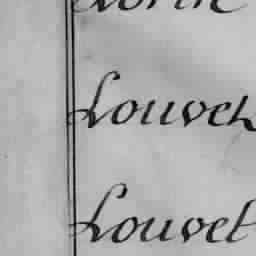 Louvet
Louvet